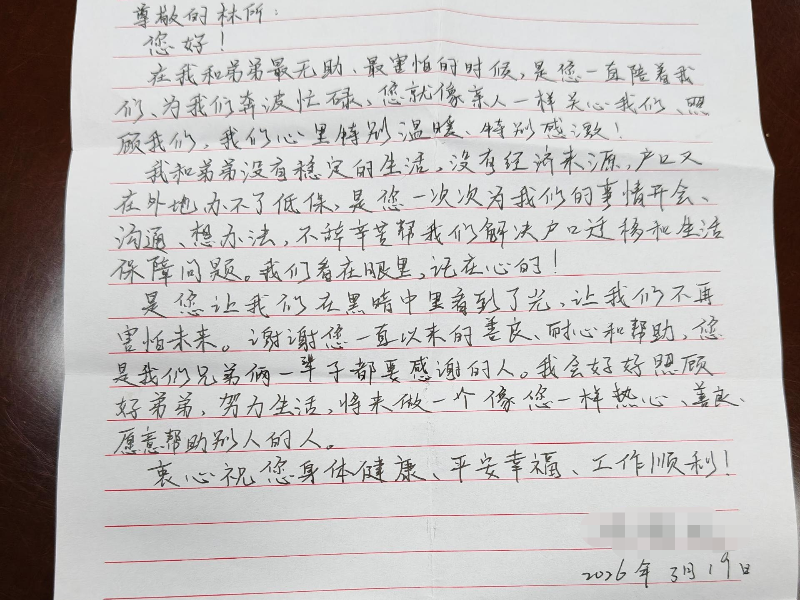 尊敬的林所：
您好！
在我和弟弟最无助、最害怕的时候，是您一直陪着我
们、为我们奔波忙碌，您就像亲人一样关心我们、照
顾我们，我们心里特别温暖、特别感激！
我和弟弟没有稳定的生活，没有经济来源，户口又
在外地办不了低保，是您一次次为我们的事情开会、
沟通、想办法，不辞辛苦帮我们解决户口迁移和生活
保障问题。我们看在眼里，记在心的！
是您让我们在黑暗中里看到了光，让我们不再
害怕未来。谢谢您一直以来的善良、耐心和帮助，您
是我们兄弟俩一辈子都要感谢的人。我会好好照顾
好弟弟，努力生活，将来做一个像您一样热心、善良、
愿意帮助别人的人。
衷心祝您身体健康、平安幸福、工作顺利！
2026年3月19日